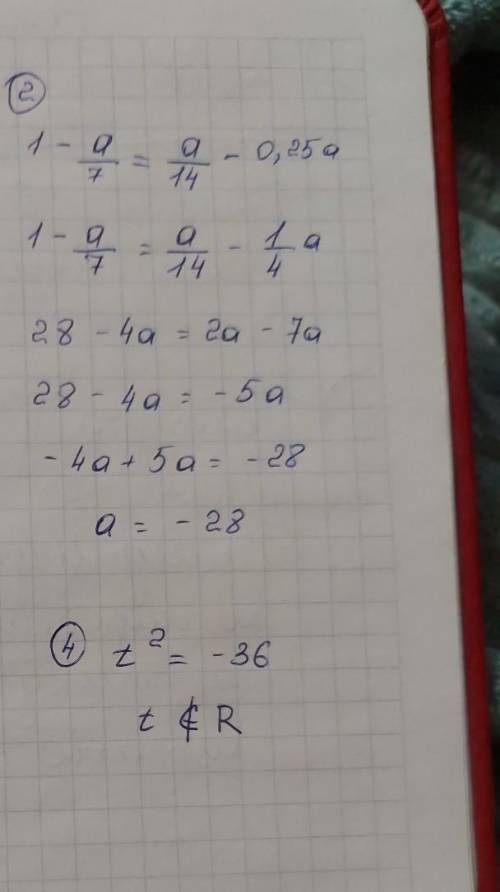 ②
1 - a/7 = a/14 - 0,25a
1 - a/7 = a/14 - 1/4 a
28 - 4a = 2a - 7a
28 - 4a = -5a
-4a + 5a = -28
a = -28
④ t² = -36
t ∉ R